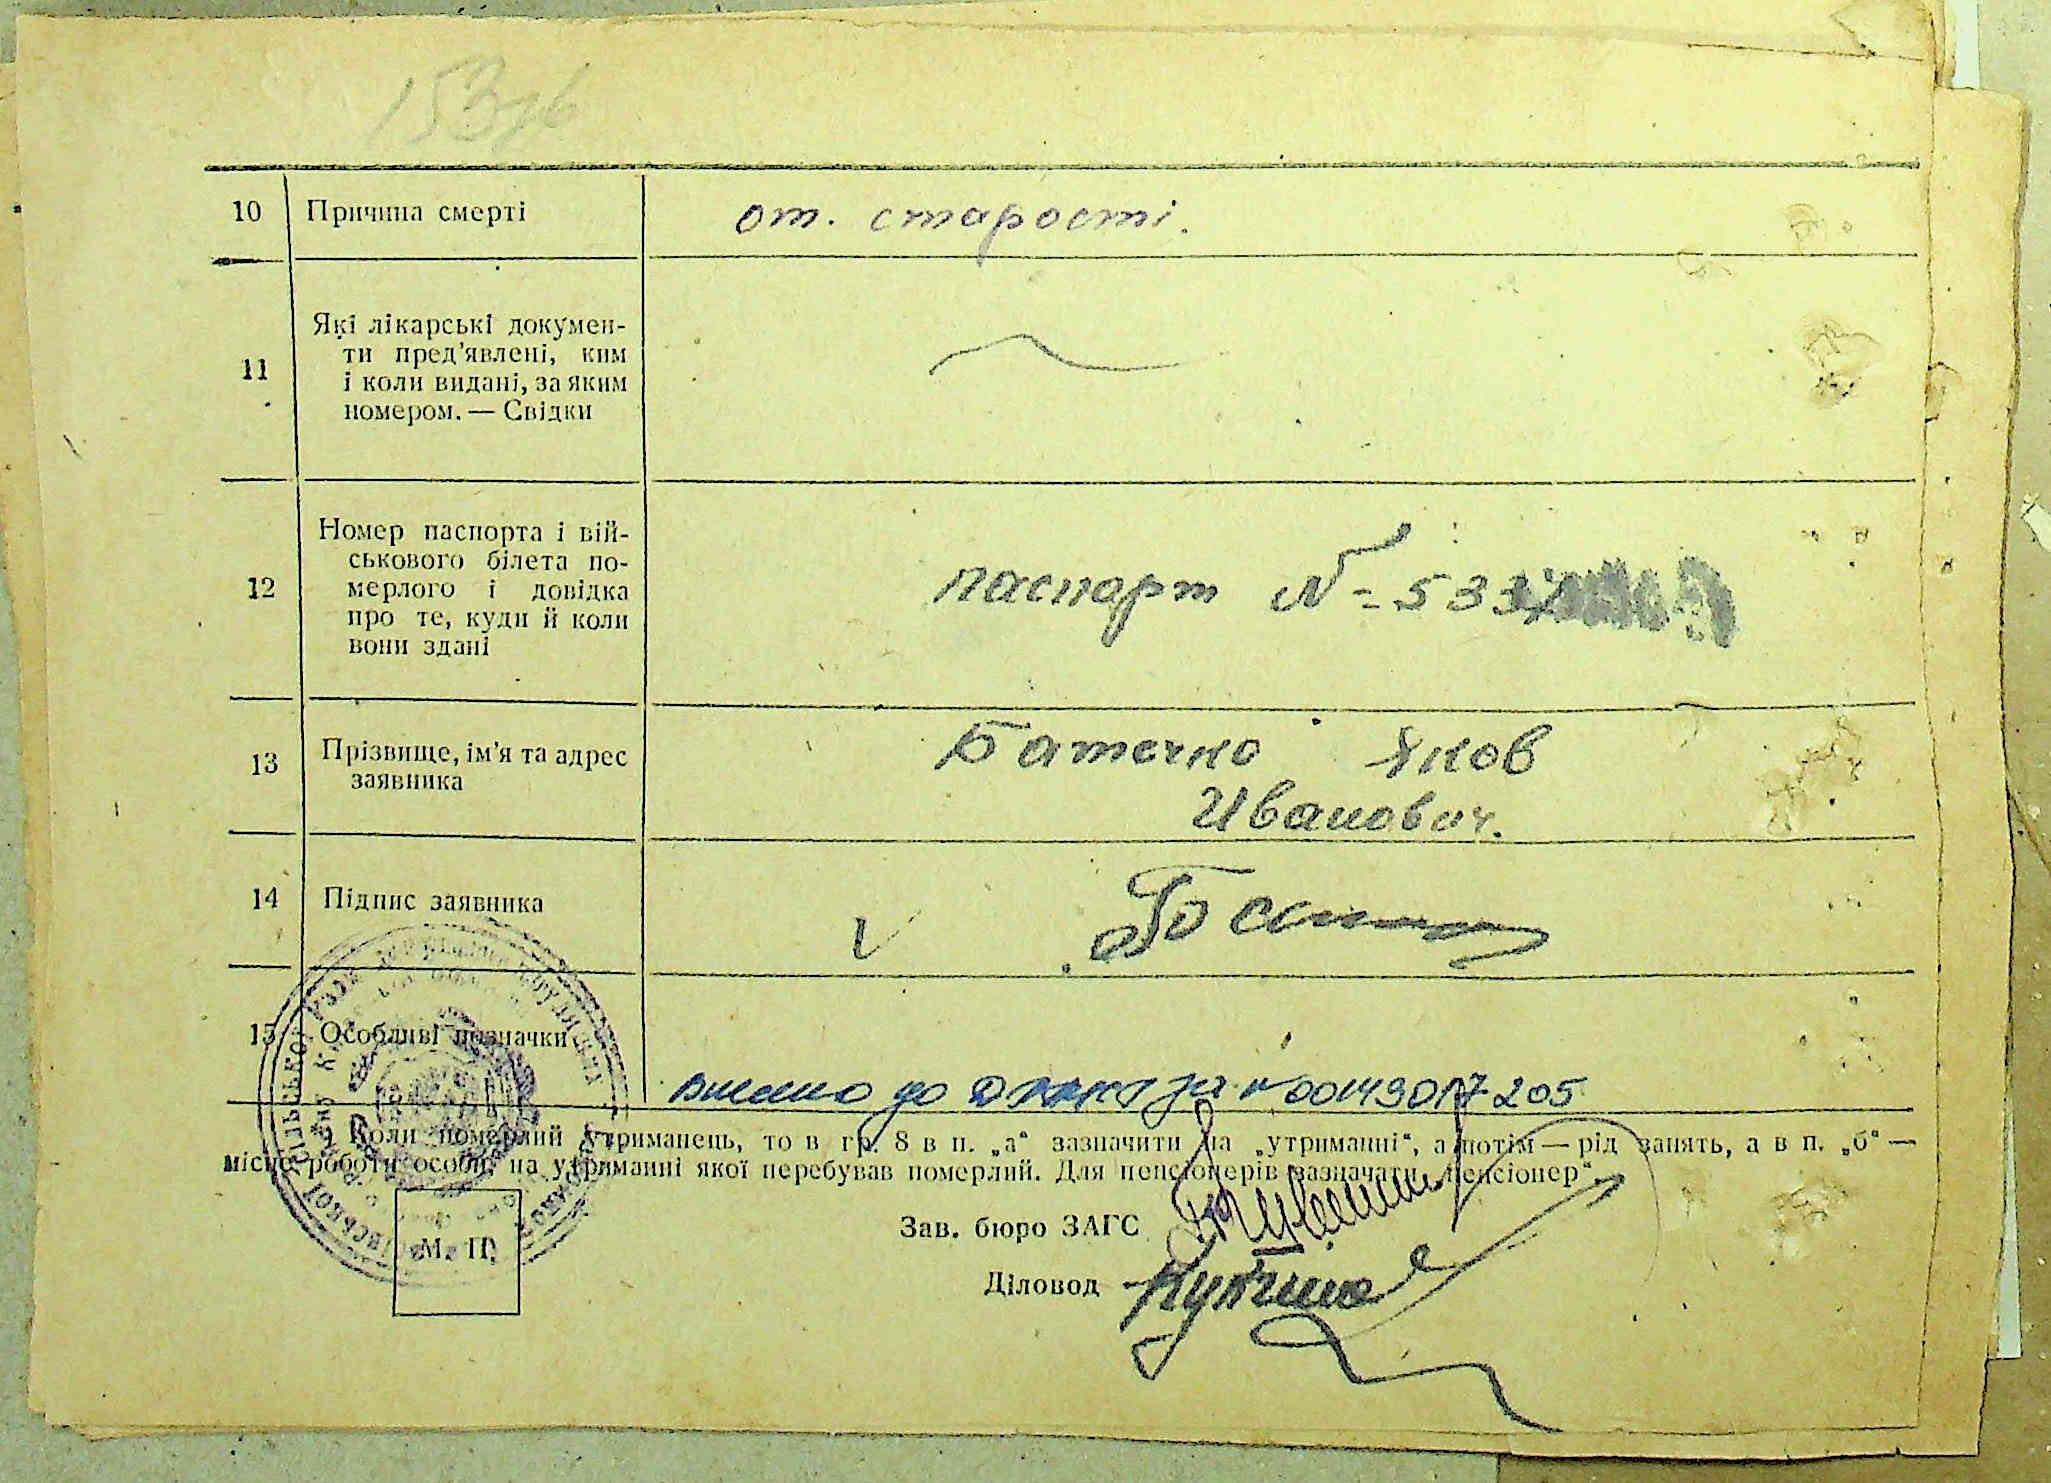 10 Причина смерті от. старості.
11 Які лікарські докумен-
ти пред'явлені, ким
і коли видані, за яким
номером. — Свідки
12 Номер паспорта і вій-
ськового білета по-
мерлого і довідка
про те, куди й коли
вони здані
паспорт N = 533
13 Прізвище, ім'я та адрес
заявника
Батечко Яков
Иванович.
14 Підпис заявника
15 Особливі позначки
внесено до ДРАЦС за N 00149017205
Коли померлий утриманець, то в гр. 8 в п. „а“ зазначити на „утриманні“, а потім — рід занять, а в п. „б“ —
місце роботи особи, на утриманні якої перебував померлий. Для пенсіонерів зазначати „пенсіонер“
Зав. бюро ЗАГС
Діловод
М. П.